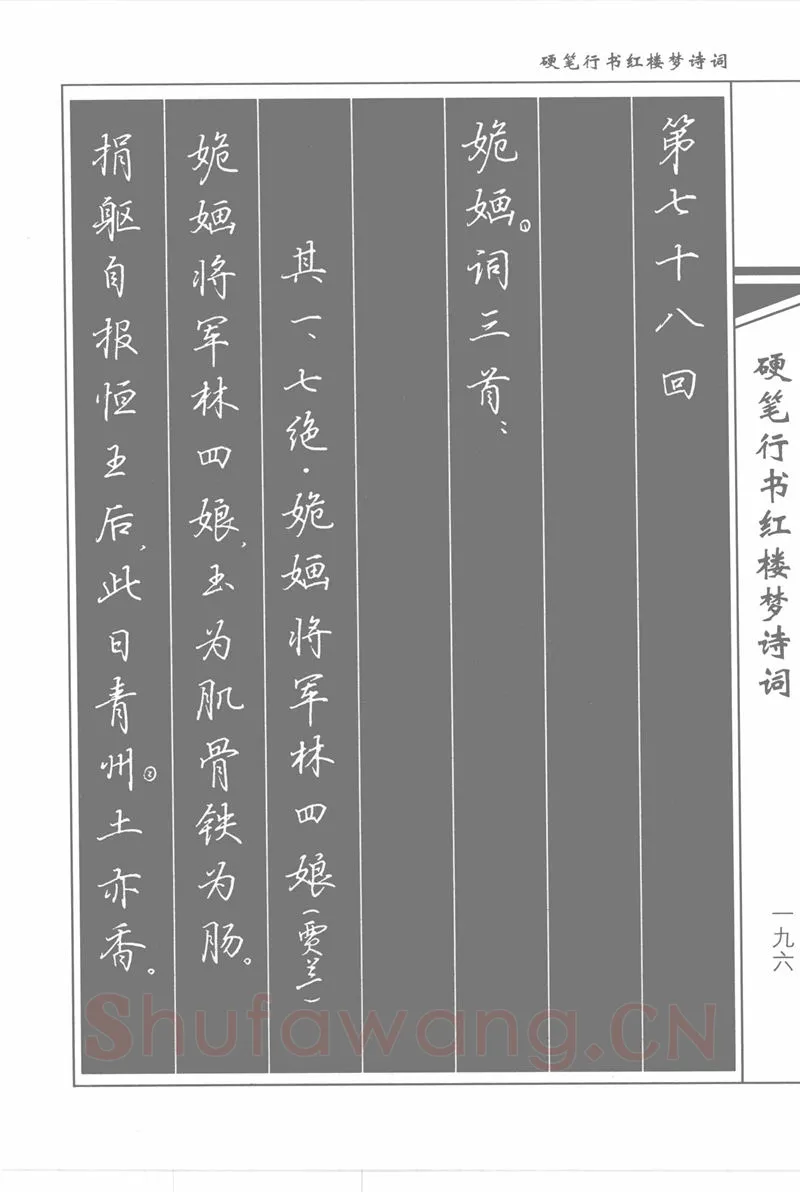 硬笔行书红楼梦诗词
第七十八回
姽婳①词三首：
其一、七绝·姽婳将军林四娘（贾兰）
姽婳将军林四娘，玉为肌骨铁为肠。
捐躯自报恒王后，此日青州②土亦香。
硬笔行书红楼梦诗词
一九六
Shufawang.CN